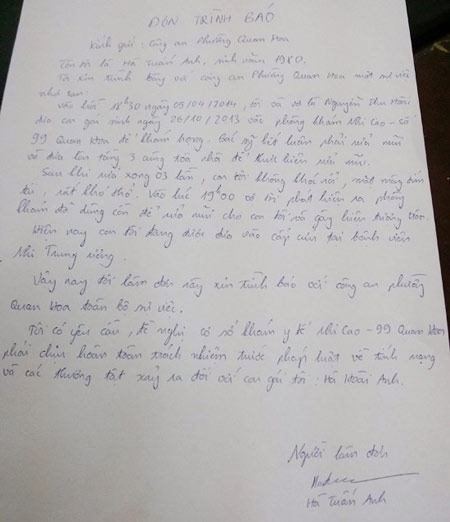 ĐƠN TRÌNH BÁO
Kính gửi: Công an Phường Quan Hoa
Tôi là Hà Tuấn Anh, sinh năm 1980.
Tôi xin trình báo với công an Phường Quan Hoa một sự việc
như sau:
Vào lúc 18h30 ngày 09/04/2014, tôi và vợ là Nguyễn Thu Hiền
đưa con gái sinh ngày 26/10/2013 vào phòng khám Nhi Cao - số
99 Quan Hoa để khám họng. Bác sỹ kết luận phải rửa mũi
và đưa lên tầng 3 cùng tòa nhà để thực hiện rửa mũi.
Sau khi rửa xong 03 lần, con tôi không khóc nữa, mặt nặng tím
tái, rất khó thở. Vào lúc 19h00 vợ tôi phát hiện ra phòng
khám đã dùng cồn để rửa mũi cho con tôi và gây hiện tượng trên.
Hiện nay con tôi đang được đưa vào cấp cứu tại bệnh viện
Nhi Trung ương.
Vậy nay tôi làm đơn này xin trình báo với công an phường
Quan Hoa toàn bộ sự việc.
Tôi có yêu cầu, đề nghị cơ sở khám y tế Nhi Cao - 99 Quan Hoa
phải chịu hoàn toàn trách nhiệm trước pháp luật về tính mạng
và các thương tật xảy ra đối với con gái tôi: Hà Hoài Anh.
Người làm đơn
Hà Tuấn Anh